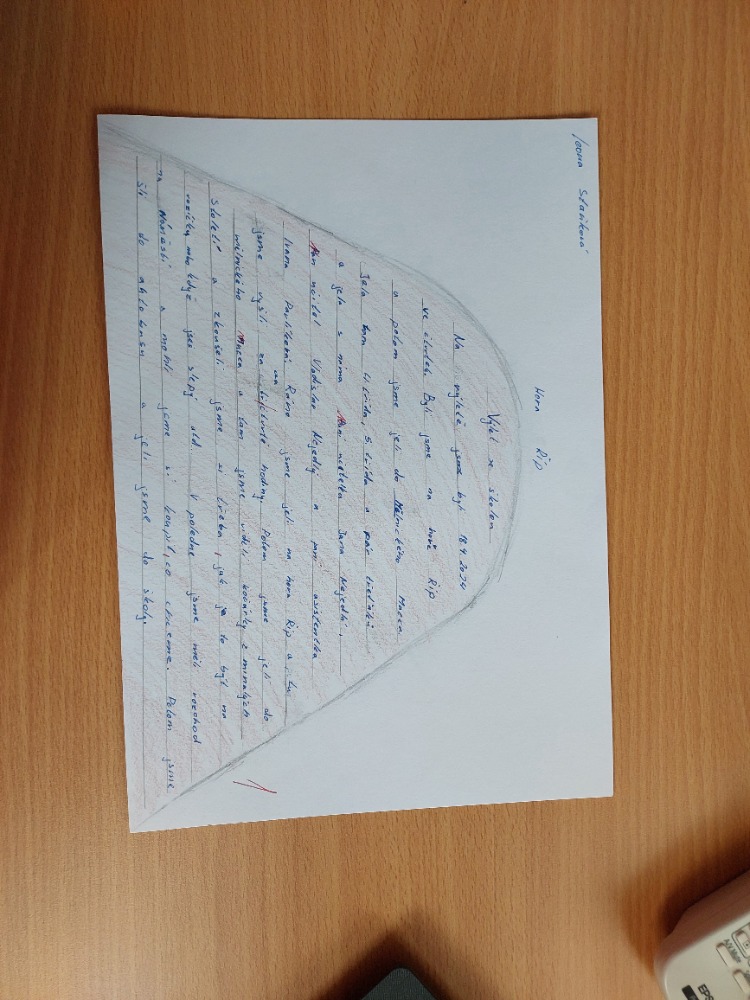 Staňková
Hora Říp
Výlet se školou
Na výletě jsme byli 18.9.2024
ve čtvrtek. Byli jsme na hoře Říp
a potom jsme jeli do Mělnického Macca.
Jela tam 4. třída, 5. třída a pár
a jela s náma Paní učitelka Jana Nejedlá,
Pán učitel Vladislav Nejedlý a paní asistentka
Ivana Pavlíková. Ráno jsme jeli na horu Říp a tu
jsme vyšli za hodiny. Potom jsme jeli do
mělnického Macca a tam jsme viděli kočárky z minulých
století a zkoušeli jsme si třeba, jak je to být na
vozíčku nebo když jsi slepý atd. V poledne jsme měli rozchod
na Náměstí a mohli jsme si koupit, co chceme. Potom jsme
šli do autobusu a jeli jsme do školy.
1
EPS